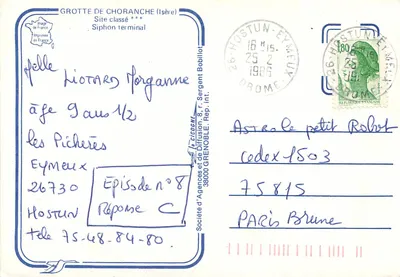 GROTTE DE CHORANCHE (Isère)
Site classé ***
Siphon terminal
Melle LIOTARD Morganne
âge 9 ans 1/2
les Pichères
EYMEUX
26730
HOSTUN
Tele 75-48-84-80.
Episode n° 8
Réponse C
Société d'Agences et de Diffusion, 8, r. Sergent Bobillot
38000 GRENOBLE. Rep. Int.
26-HOSTUN-EYMEUX
16 H 15-
25-2
1986
DROME
1,80
ASTRO le petit Robot
Cedex 1503
75815
PARIS Brune